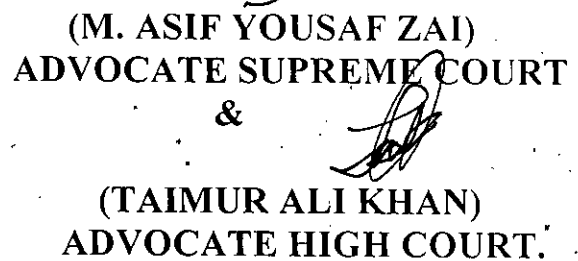 (M. ASIF YOUSAF ZAI)
ADVOCATE SUPREME COURT
&
(TAIMUR ALI KHAN)
ADVOCATE HIGH COURT.